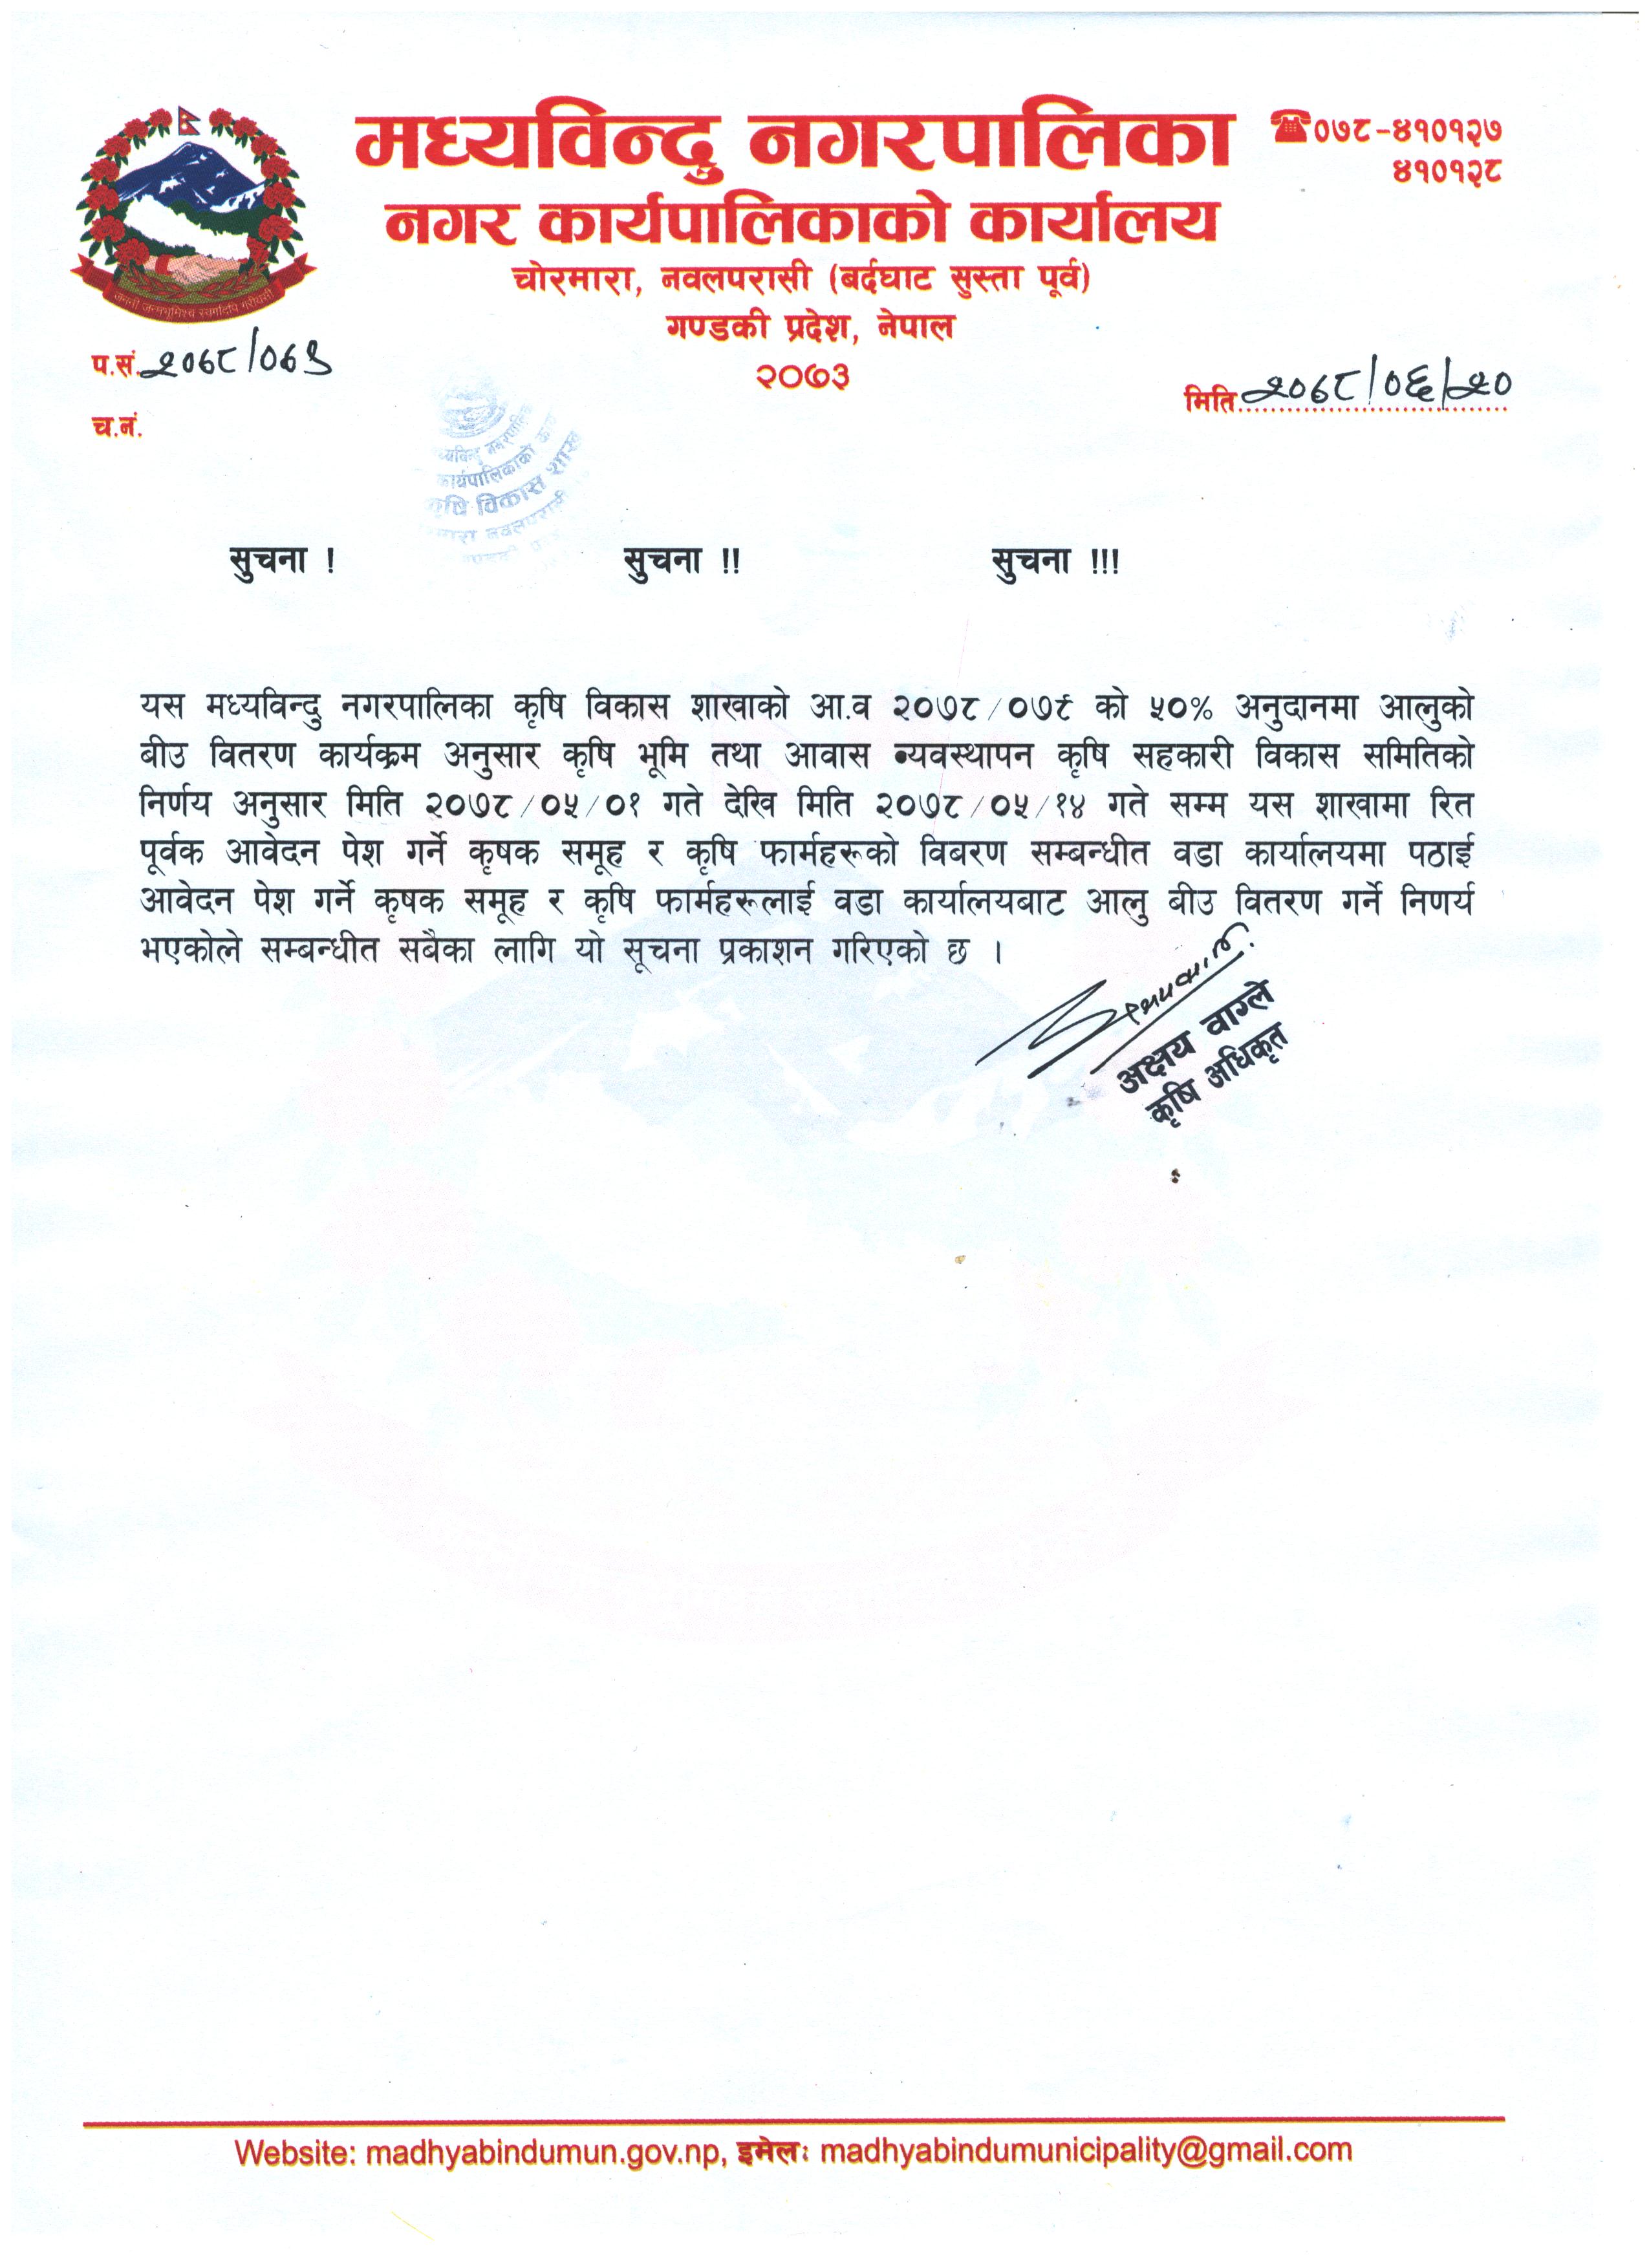 मध्यविन्दु नगरपालिका
नगर कार्यपालिकाको कार्यालय
चोरमारा, नवलपरासी (बर्दघाट सुस्ता पूर्व)
गण्डकी प्रदेश, नेपाल
२०७३
☎०७८-४१०१२७
४१०१२८
जननी जन्मभूमिश्च स्वर्गादपि गरीयसी
प.सं. २०७८/०७९
मिति २०७८/०६/२०
च.नं.
कार्यपालिकाको
कृषि विकास
सुचना ! सुचना !! सुचना !!!
यस मध्यविन्दु नगरपालिका कृषि विकास शाखाको आ.व २०७८/०७९ को ५०% अनुदानमा आलुको
बीउ वितरण कार्यक्रम अनुसार कृषि भूमि तथा आवास व्यवस्थापन कृषि सहकारी विकास समितिको
निर्णय अनुसार मिति २०७८/०५/०१ गते देखि मिति २०७८/०५/१४ गते सम्म यस शाखामा रित
पूर्वक आवेदन पेश गर्ने कृषक समूह र कृषि फार्महरूको विबरण सम्बन्धीत वडा कार्यालयमा पठाई
आवेदन पेश गर्ने कृषक समूह र कृषि फार्महरूलाई वडा कार्यालयबाट आलु बीउ वितरण गर्ने निणर्य
भएकोले सम्बन्धीत सबैका लागि यो सूचना प्रकाशन गरिएको छ ।
अक्षय वाग्ले
कृषि अधिकृत
Website: madhyabindumun.gov.np, इमेलः madhyabindumunicipality@gmail.com